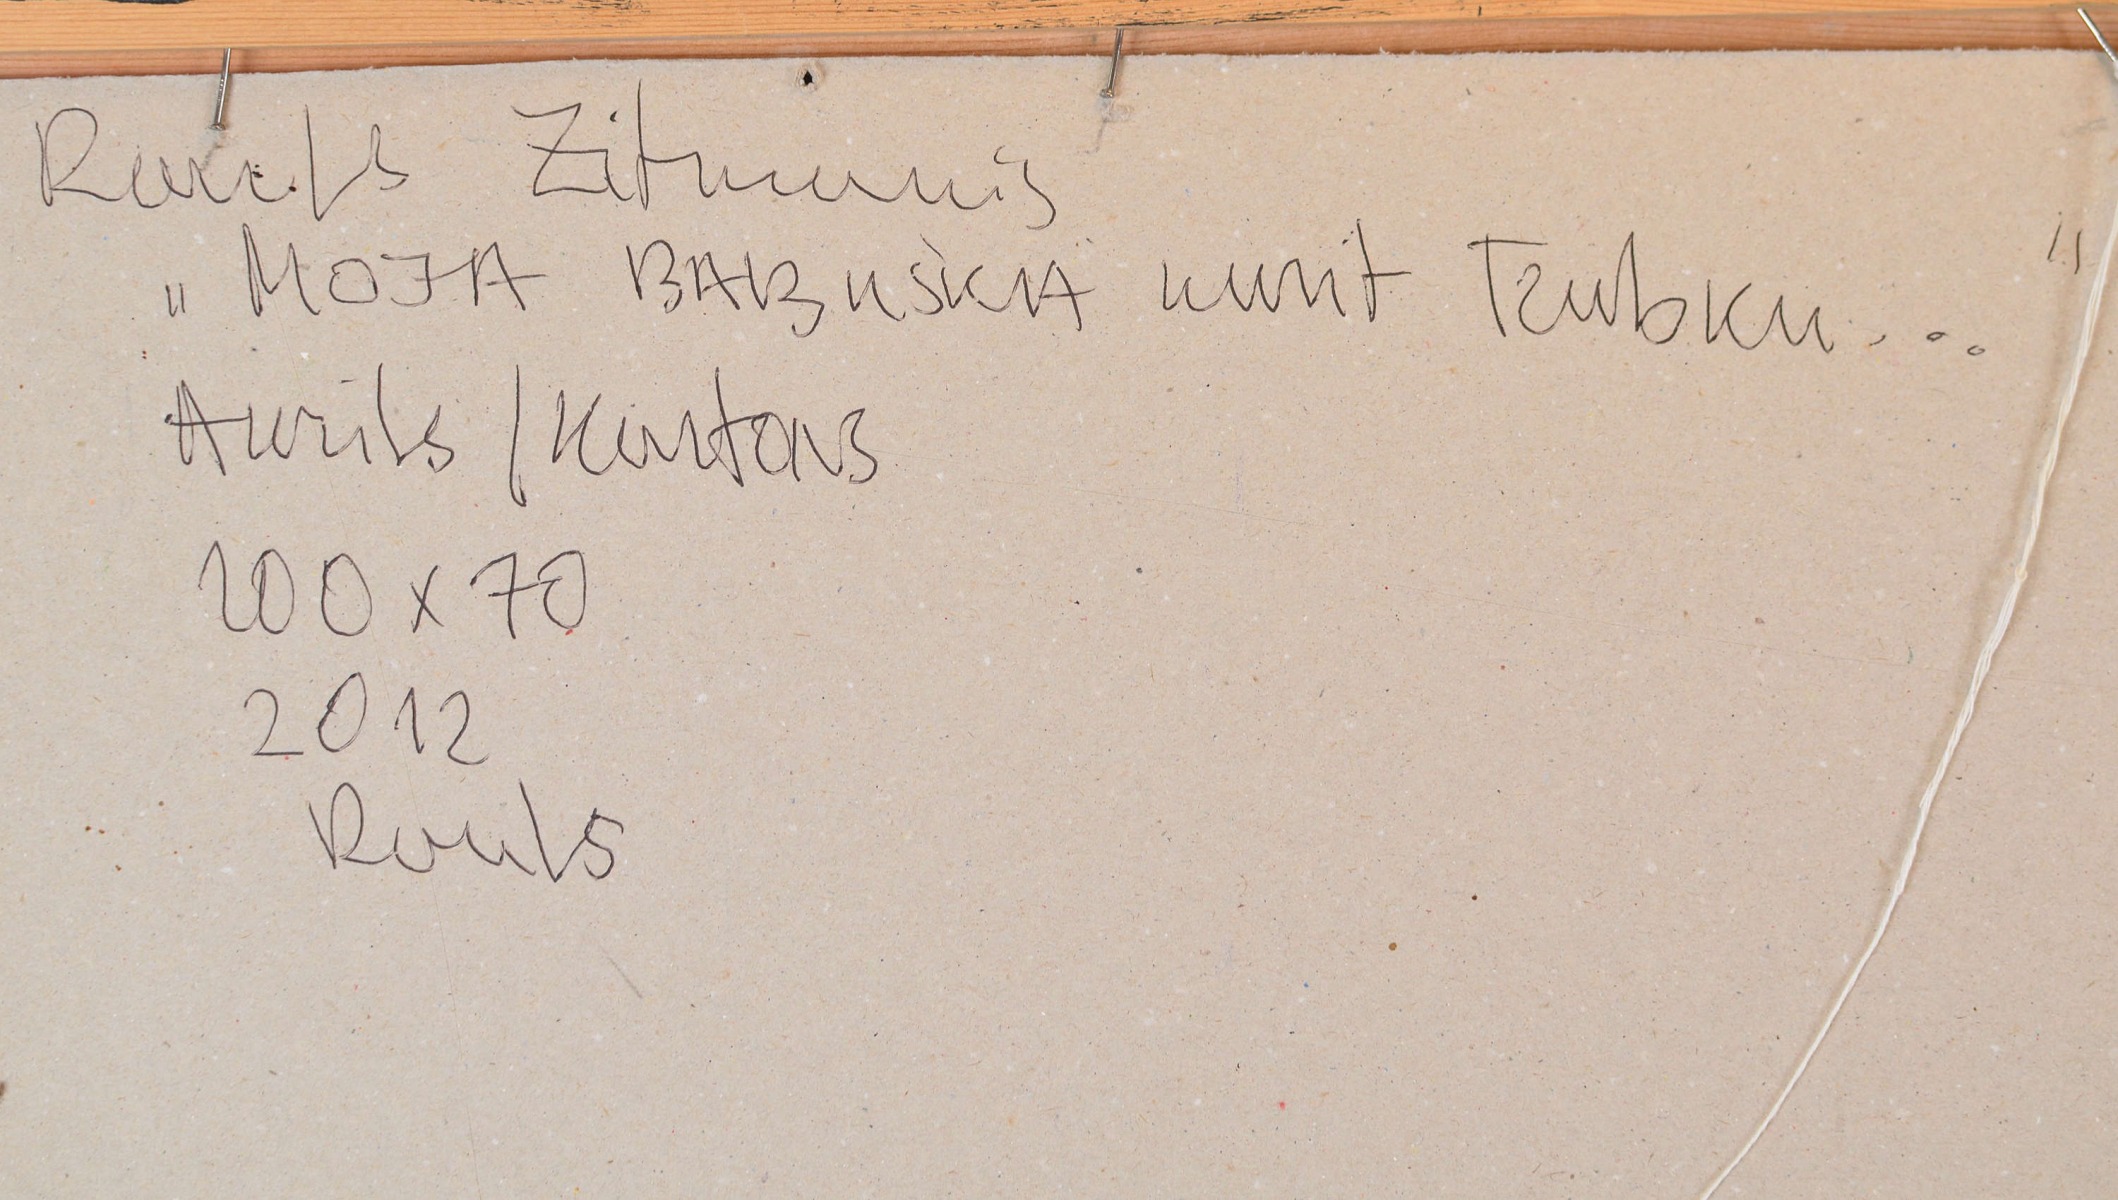 Rauls Zitmanis
„MOJA BABUŠKA kurit Trubku..."
Akrils/Kartons
100x70
2012
Rouls